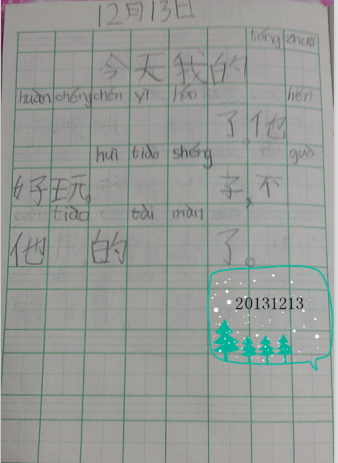 12月13日
tóng zhuō
今天我的
huàn chéng chén yī háo hěn
了,他
huì tiào shéng guò
好玩, 子,不
tiào tài màn
他 的 了。
20131213